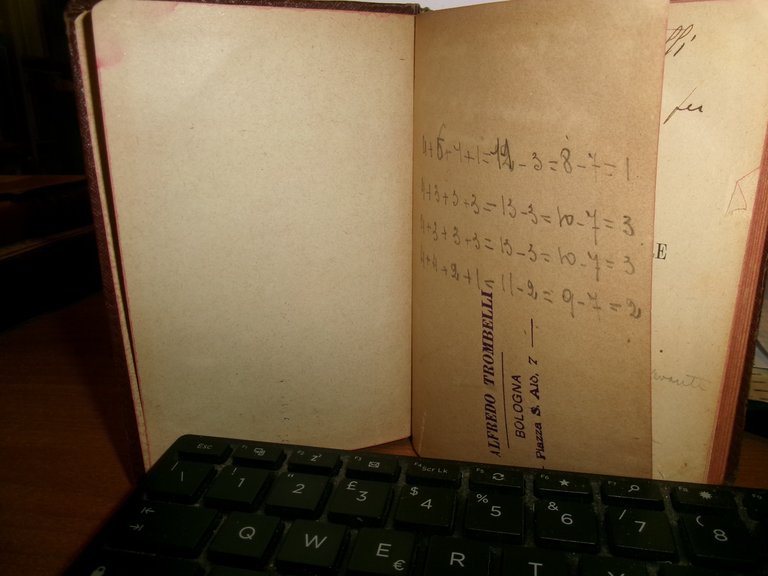 4+3+3+3=13-3=10-7=3
4+3+3+3=13-3=10-7=3
4+4+2+1=11-2=9-7=2
ALFREDO TROMBELLI
BOLOGNA
Piazza S. Aló, 7
per
Esc
F1
F2
F3
F4 Scr Lk
F5
F6
F7
F8
\ |
! 1
" 2
£ 3
$ 4
% 5
& 6
/ 7
( 8
Q W E € R T